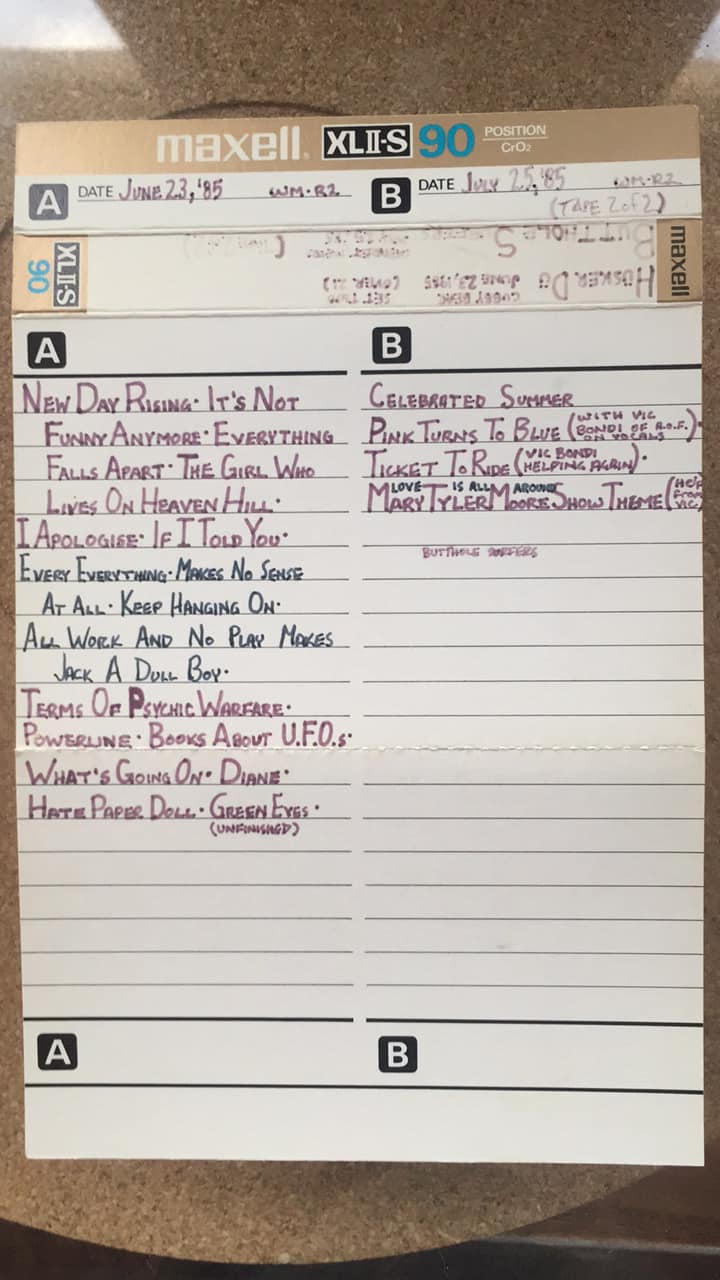 maxell. XLII-S 90 POSITION CrO2
A DATE JUNE 23, '85 WM-R2 B DATE JULY 25, '85 WM-R2
(TAPE 2 of 2)
BUTTHOLE S
XLII-S 90 maxell
HÜSKER DÜ JUNE 23, 1985
A B
NEW DAY RISING· IT'S NOT
FUNNY ANYMORE· EVERYTHING
FALLS APART· THE GIRL WHO
LIVES ON HEAVEN HILL·
I APOLOGISE· IF I TOLD YOU·
EVERY EVERYTHING· MAKES NO SENSE
AT ALL· KEEP HANGING ON·
ALL WORK AND NO PLAY MAKES
JACK A DULL BOY·
TERMS OF PSYCHIC WARFARE·
POWERLINE· BOOKS ABOUT U.F.O.s·
WHAT'S GOING ON· DIANE·
HATE PAPER DOLL· GREEN EYES·
(UNFINISHED)
CELEBRATED SUMMER
PINK TURNS TO BLUE (WITH VIC BONDI OF A.O.F. ON VOCALS)·
TICKET TO RIDE (VIC BONDI HELPING AGAIN)·
LOVE IS ALL AROUND
MARY TYLER MOORE SHOW THEME (HELP FROM VIC)
BUTTHOLE SURFERS
A B